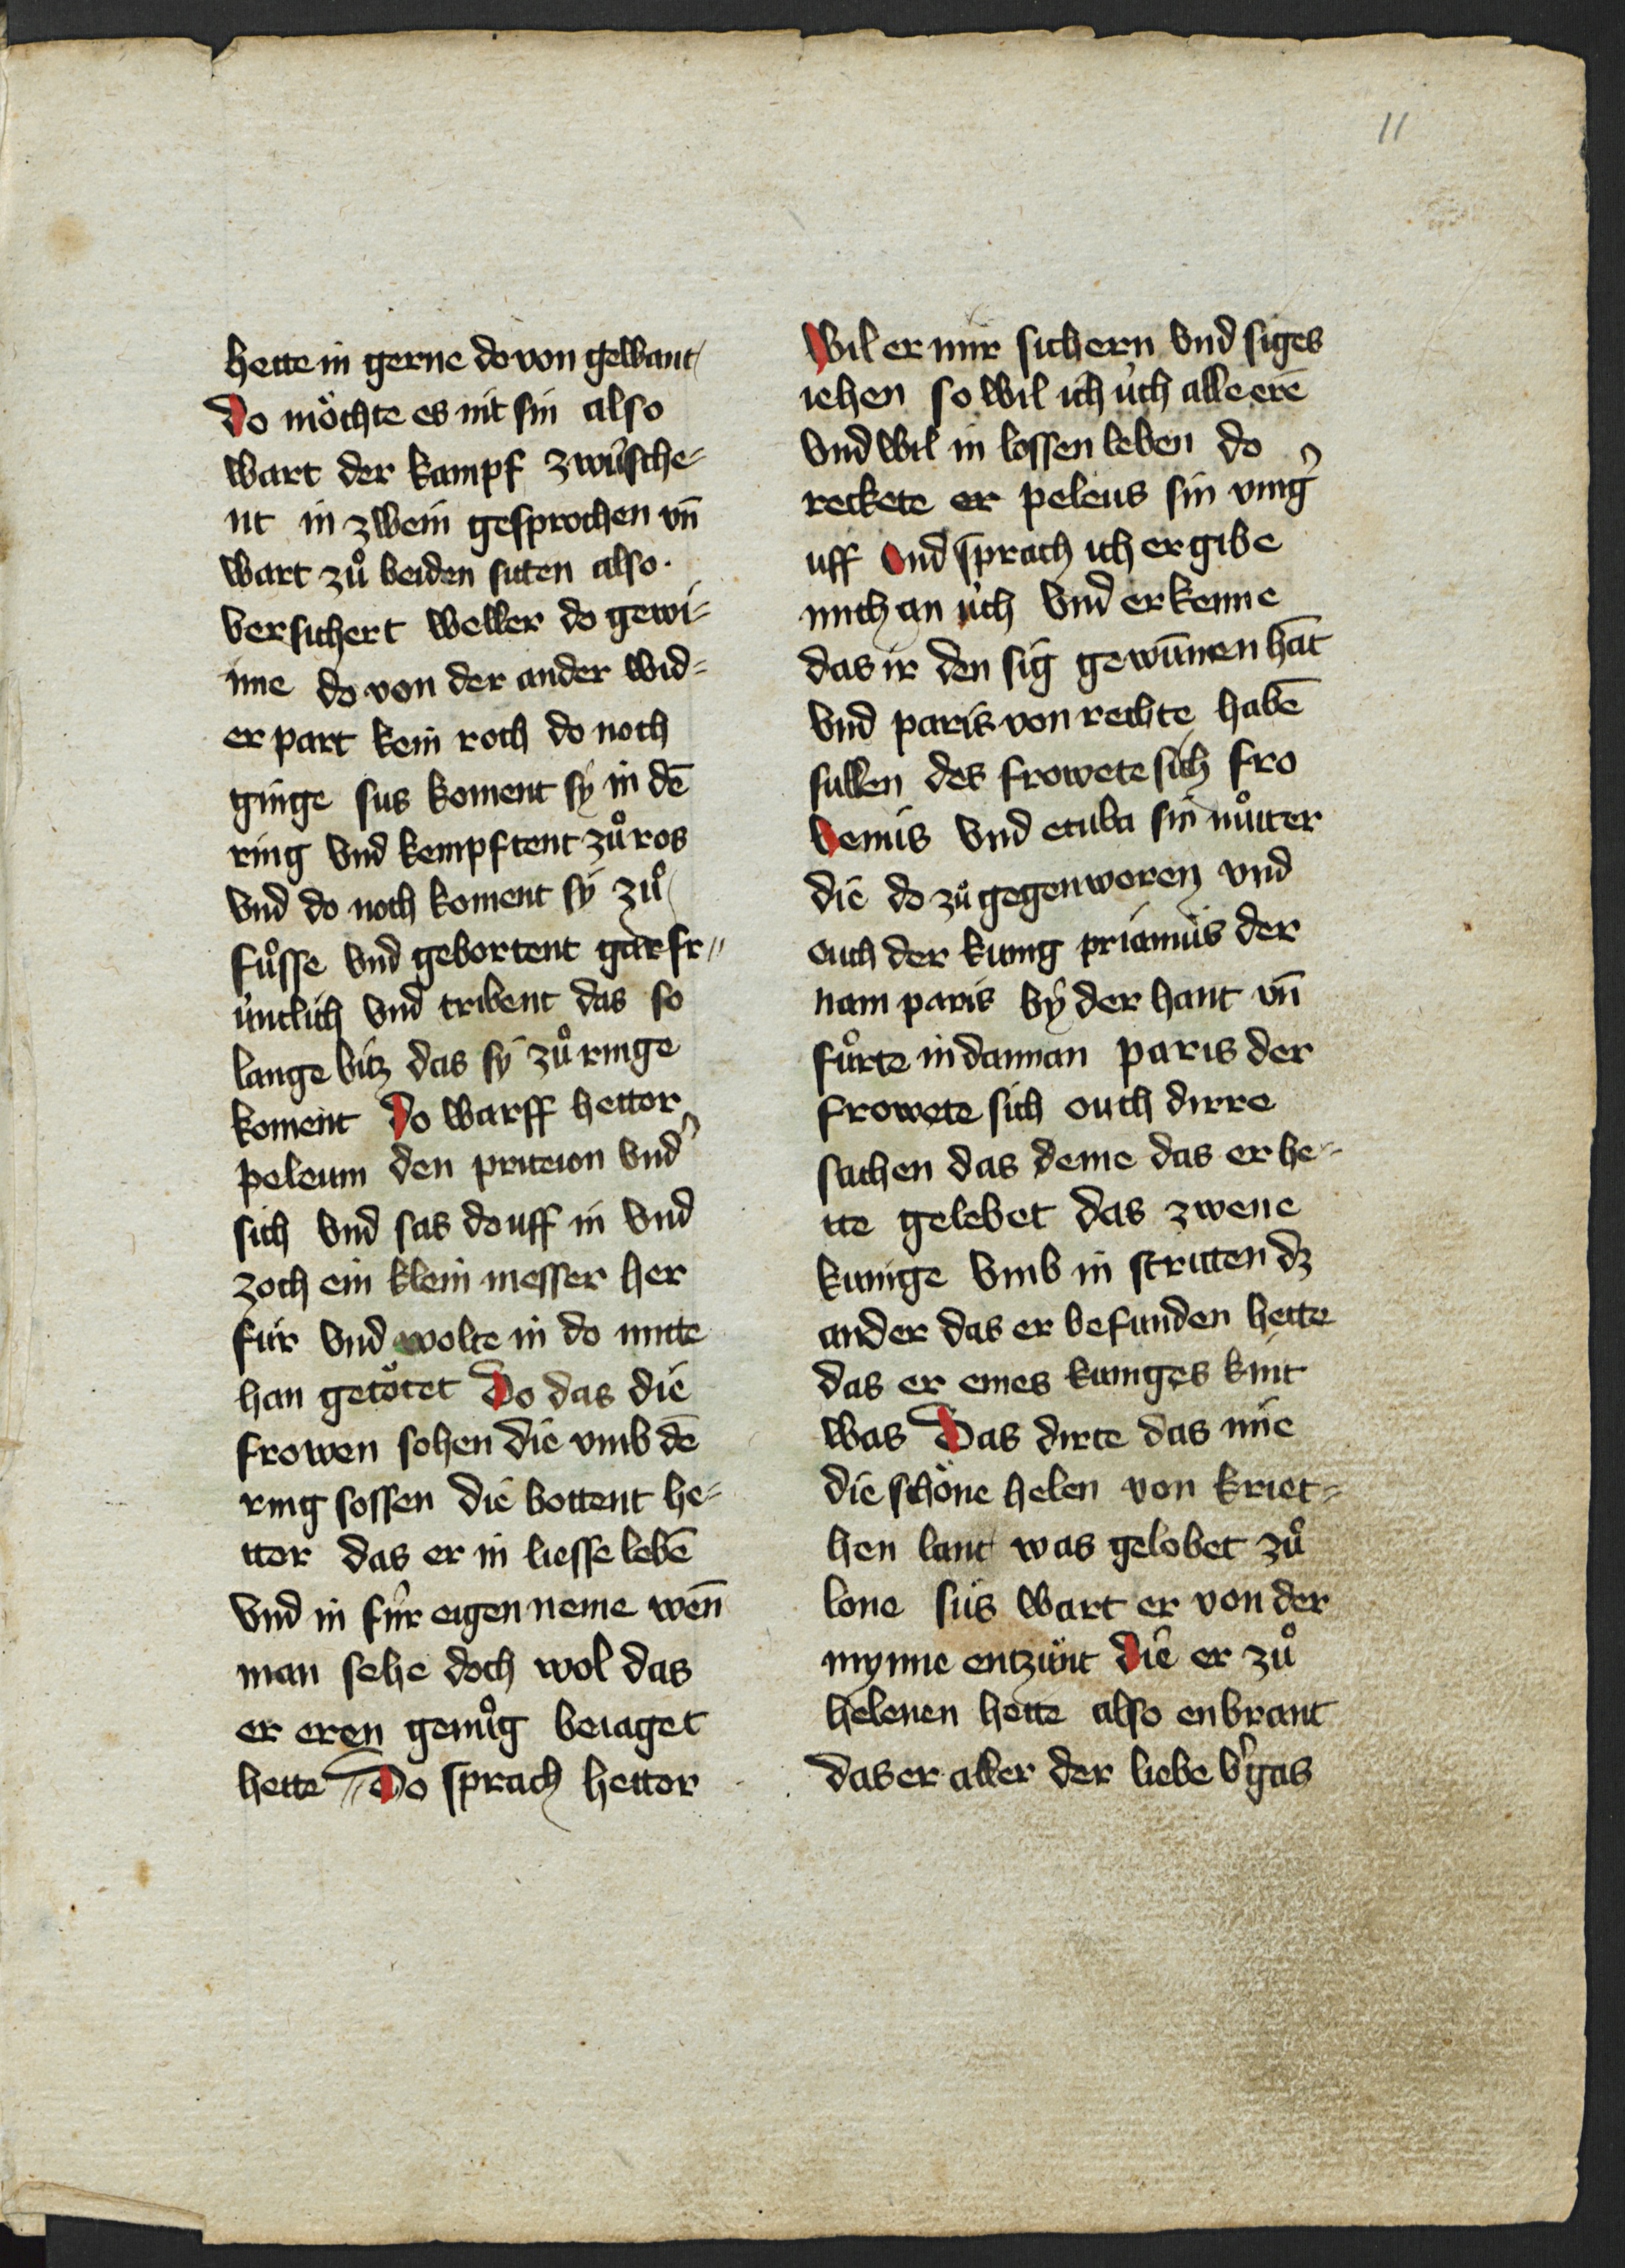 11
hette in gerne do von gewant
Do möchte es nit sin also
wart der kampf zwúsche⸗
nt in zwein gesprochen vn̄
wart zů beiden siten also·
versichert weller do gewi⸗
nne do von der ander wid⸗
er part kein roch do noch
ginge sus koment sÿ in dē
ring vnd kempftent zů ros
vnd do noch koment sÿ zů
fůsse vnd gebortent gar fr⸗
úntlich vnd tribent das so
lange bitz das sÿ zů ringe
koment Do warff hettor
peleum den priteion vnd᾽
sich vnd sas do uff in vnd
zoch ein klein messer her
fúr vnd wolte in do mitte
han getötet Do das die
frowen sohen die vmb dē
ring sossen die bottent he⸗
ttor das er in liesse lebē
vnd in fúr eigen neme wēn
man sehe doch wol das
er eren genůg beiaget
hette Do sprach hettor
Wil er mir sichern vnd siges
iehen so wil ich úch alle erē
vnd wil in lossen leben do
reckete er peleus sin ving᾽
uff vnd sprach ich ergibe
mich an úch vnd erkenne
das ir den sig gewūnen hāt
vnd paris von rechte habē
sullen des frowete sich fro
venus vnd ecuba sin můter
die do zů gegen woren vnd
ouch der kunig priamus der
nam paris bÿ der hant vn̄
fůrte in dannan paris der
frowete sich ouch dirre
sachen das deme das er he⸗
tte gelebet das zwene
kunige vmb in stritten dz
ander das er befunden hette
das er eines kuniges kint
was Das dirte das ime
die schöne helen von kriet⸗
hen lant was gelobet zů
lone sus wart er von der
mynne entzúnt die er zů
helenen hette also enbrant
das er aller der liebe v᾽gas